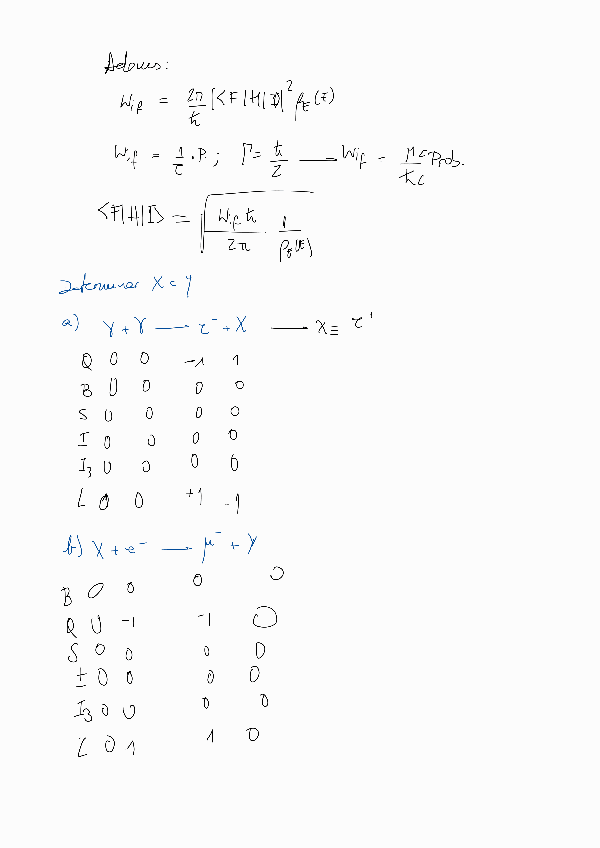 Además:
W_if = 2π/ħ |<F|H|I>|² ρ_E(E)
W_if = 1/τ · P. ; Γ = ħ/τ — W_if = Γc/ħc Prob.
<F|H|I> = √(W_if ħ / 2π · 1/ρ_E(E))
Determinar X e Y
a) γ + γ → τ⁻ + X → X ≡ τ⁺
Q 0 0 -1 1
B 0 0 0 0
S 0 0 0 0
I 0 0 0 0
I₃ 0 0 0 0
L 0 0 +1 -1
b) X + e⁻ → μ⁻ + Y
B 0 0 0 0
Q 0 -1 -1 0
S 0 0 0 0
I 0 0 0 0
I₃ 0 0 0 0
L 0 1 1 0